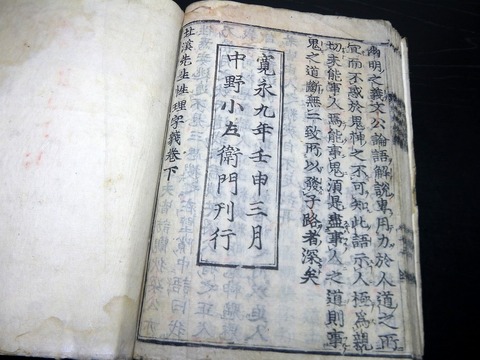 幽明之義文公論語解說專用力於人道之所
宜而不惑於鬼神之不可知此語示人極爲親
切未能事人焉能事鬼須是盡事人之道則事
鬼之道斷無二致所以發子路者深矣
寛永九年壬申三月
中野小左衛門刊行
北溪先生性理字義卷下